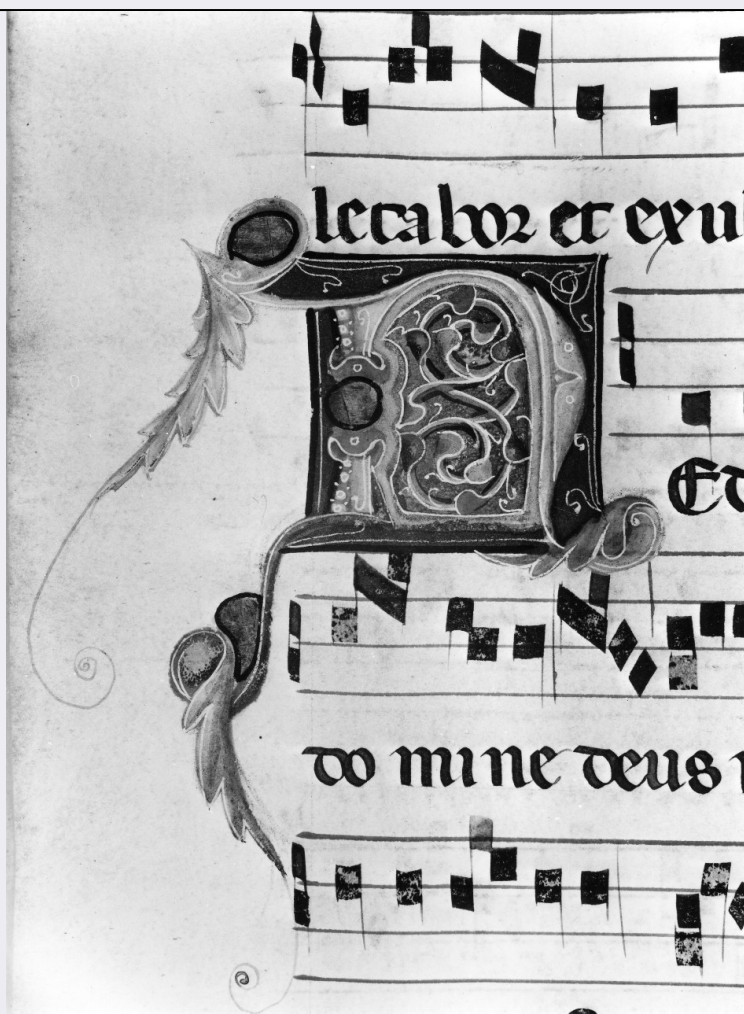 letabor et exul
R
Ed
do mine deus